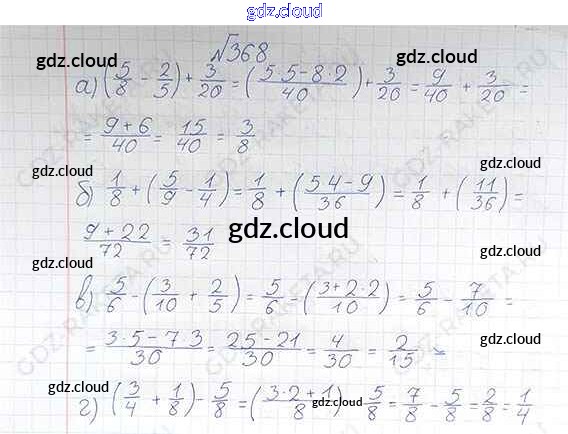 gdz.cloud
gdz.cloud
№368
gdz.cloud gdz.cloud
а) (5/8 - 2/5) + 3/20 = (5·5-8·2/40) + 3/20 = 9/40 + 3/20 =
= 9+6/40 = 15/40 = 3/8
gdz.cloud
gdz.cloud
б) 1/8 + (5/9 - 1/4) = 1/8 + (5·4-9/36) = 1/8 + (11/36) =
9+22/72 = 31/72
gdz.cloud
gdz.cloud
gdz.cloud
в) 5/6 - (3/10 + 2/5) = 5/6 = (3+2·2/10) = 5/6 - 7/10 =
= 3·5-7·3/30 = 25-21/30 = 4/30 = 2/15
gdz.cloud
gdz.cloud
г) (3/4 + 1/8) - 5/8 = (3·2+1/8) gdz.cloud 5/8 = 7/8 - 5/8 = 2/8 = 1/4
gdz.cloud
GDZ-RAKETA.RU